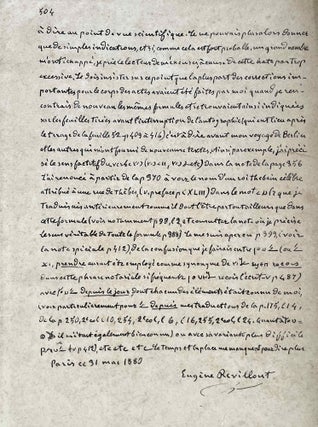 504
à dire au point de vue scientifique. Je ne pouvais plus alors donner
que de simples indications, et si, comme cela est fort probable, un grand nombre
m'ont échappé, je prie le lecteur de m'excuser, à cause de cette hâte par trop
excessive. Je dois insister sur ce point que la plupart des corrections im-
portantes pour le corps des actes avaient été faites par moi quand je ren-
contrais de nouveau les mêmes formules et se trouvaient ainsi indiquées
sur les feuilles tirées avant l'interruption de l'autographie (qui en lieu après
le tirage de la feuille 52 p 409 à 416) c'est à dire avant mon voyage de Berlin
et les autres qui m'ont fourni de nouveaux textes. Ainsi par exemple, j'ai préci-
sé le sens factitif du verbe dans la note de la page 356
J'ai renoncé à partir de la p 370 à voir le nom d'un
attribué à une rue de Thèbes (v. préface p CXLIII) dans le mot que je
traduisais antérieurement comme il doit l'être partout ailleurs que dans
cette formule (voir notamment p 98, 12 et consulter la note où j'précise
le sens véritable de toute la formule p 388) Je me suis aperçu p 399 (voir
la note spéciale p 412) de la confusion que je faisais entre
prendre ayant été employé comme synonyme de
dans cette phrase notariale si fréquente p 487)
avec depuis le jour dont chacun des éléments était connu de moi,
(voir particulièrement pour depuis mes traductions de la p. 175, l 4,
de la p 250, 2e col, l 10, 254, 2e col, l 6, l 16, 255, 2e col, l 24. Quant à
il m'était également bien connu) ou avec sa variante plus difficile
p 412), etc etc et Le temps et la place me manquent pour dire plus
Paris ce 31 mai 1880
Eugène Revillout